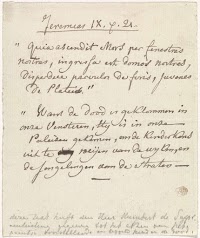 Jeremias IX. v. 21.
"Quia ascendit Mors per fenestras
nostras, ingressa est domos nostras,
Disperdere parvulos de foris, juvenes
de Plateis."
"Want de Dood is geklommen in
onze Vensteren, Hij is in onze
Paleizen gekomen, om de Kinderkens
uit te roeijen van de wijken, en
de jongelingen van de straten
deze druk heeft den Heer